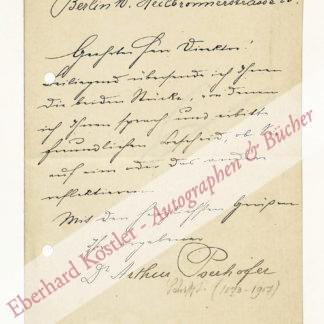 Berlin W. Heilbronnerstrasse
Geehrter Herr Direktor!
Beiliegend übersende ich Ihnen
die beiden Stücke, von denen
ich Ihnen sprach und erbitte
freundlichen Bescheid, ob Sie
auf ein oder das andre
reflektieren.
Mit den Grüßen
Ihr ergebener
Dr Arthur Pserhofer
Schriftst. (1873-1907)
Eberhard Köstler - Autographen & Bücher